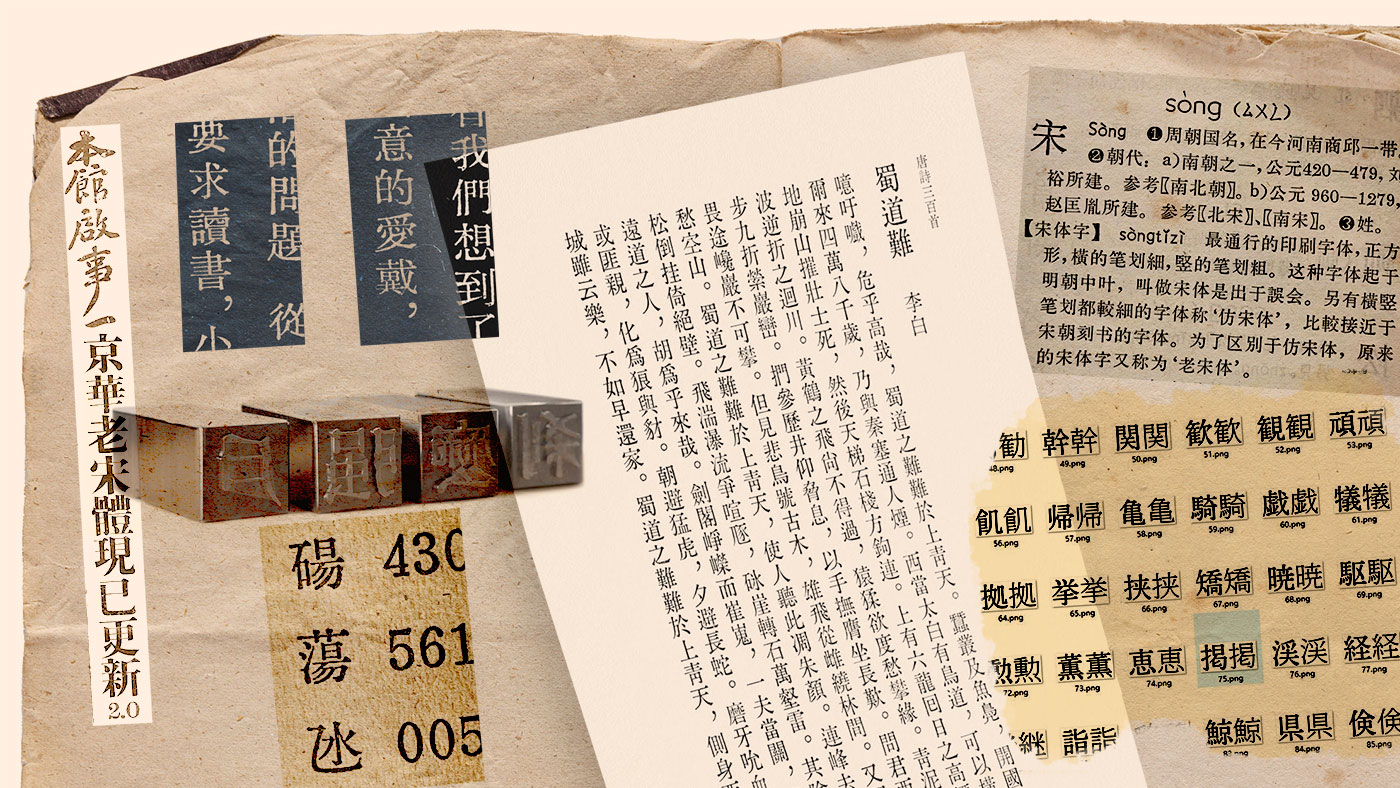 本館啟事一京華老宋體現已更新
2.0
的問題 從
要求讀書，小
我們想到了
意的愛戴，
碭 430
蕩 561
氹 005
唐詩三百首
蜀道難 李白
噫吁嚱，危乎高哉，蜀道之難難於上靑天。蠶叢及魚鳧，開國
爾來四萬八千歲，乃與秦塞通人煙。西當太白有鳥道，可以橫
地崩山摧壯士死，然後天梯石棧方鉤連。上有六龍回日之高
波逆折之迴川。黃鶴之飛尙不得過，猿猱欲度愁攀緣。靑泥
步九折縈巖巒。捫參歷井仰脅息，以手撫膺坐長歎。問君西
畏途巉巖不可攀。但見悲鳥號古木，雄飛從雌繞林間。又
愁空山。蜀道之難難於上靑天，使人聽此凋朱顏。連峰去
松倒挂倚絕壁。飛湍瀑流爭喧豗，砯崖轉石萬壑雷。其險
遠道之人，胡爲乎來哉。劍閣崢嶸而崔嵬，一夫當關，
或匪親，化爲狼與豺。朝避猛虎，夕避長蛇。磨牙吮血
城雖云樂，不如早還家。蜀道之難難於上靑天，側身西
sòng (ㄙㄨㄥˋ)
宋 Sòng ❶周朝国名，在今河南商邱一带
❷朝代：a)南朝之一，公元420—479，刘
裕所建。参考〖南北朝〗。b)公元 960—1279，
赵匡胤所建。参考〖北宋〗、〖南宋〗。❸姓。
【宋体字】 sòngtǐzì 最通行的印刷字体，正方
形，横的笔划細，竖的笔划粗。这种字体起于
明朝中叶，叫做宋体是出于誤会。另有横竖
笔划都較細的字体称‘仿宋体’，比較接近于
宋朝刻书的字体。为了区别于仿宋体，原来
的宋体字又称为‘老宋体’。
勧 幹幹 関関 歓歓 観観 頑頑
48.png 49.png 50.png 51.png 52.png 53.png
飢飢 帰帰 亀亀 騎騎 戯戯 犠犠
56.png 57.png 58.png 59.png 60.png 61.png
拠拠 挙挙 挟挟 矯矯 暁暁 駆駆
64.png 65.png 66.png 67.png 68.png 69.png
勲勲 薫薫 恵恵 掲掲 渓渓 経経
72.png 73.png 74.png 75.png 76.png 77.png
継 詣詣 鯨鯨 県県 倹倹
83.png 84.png 85.png